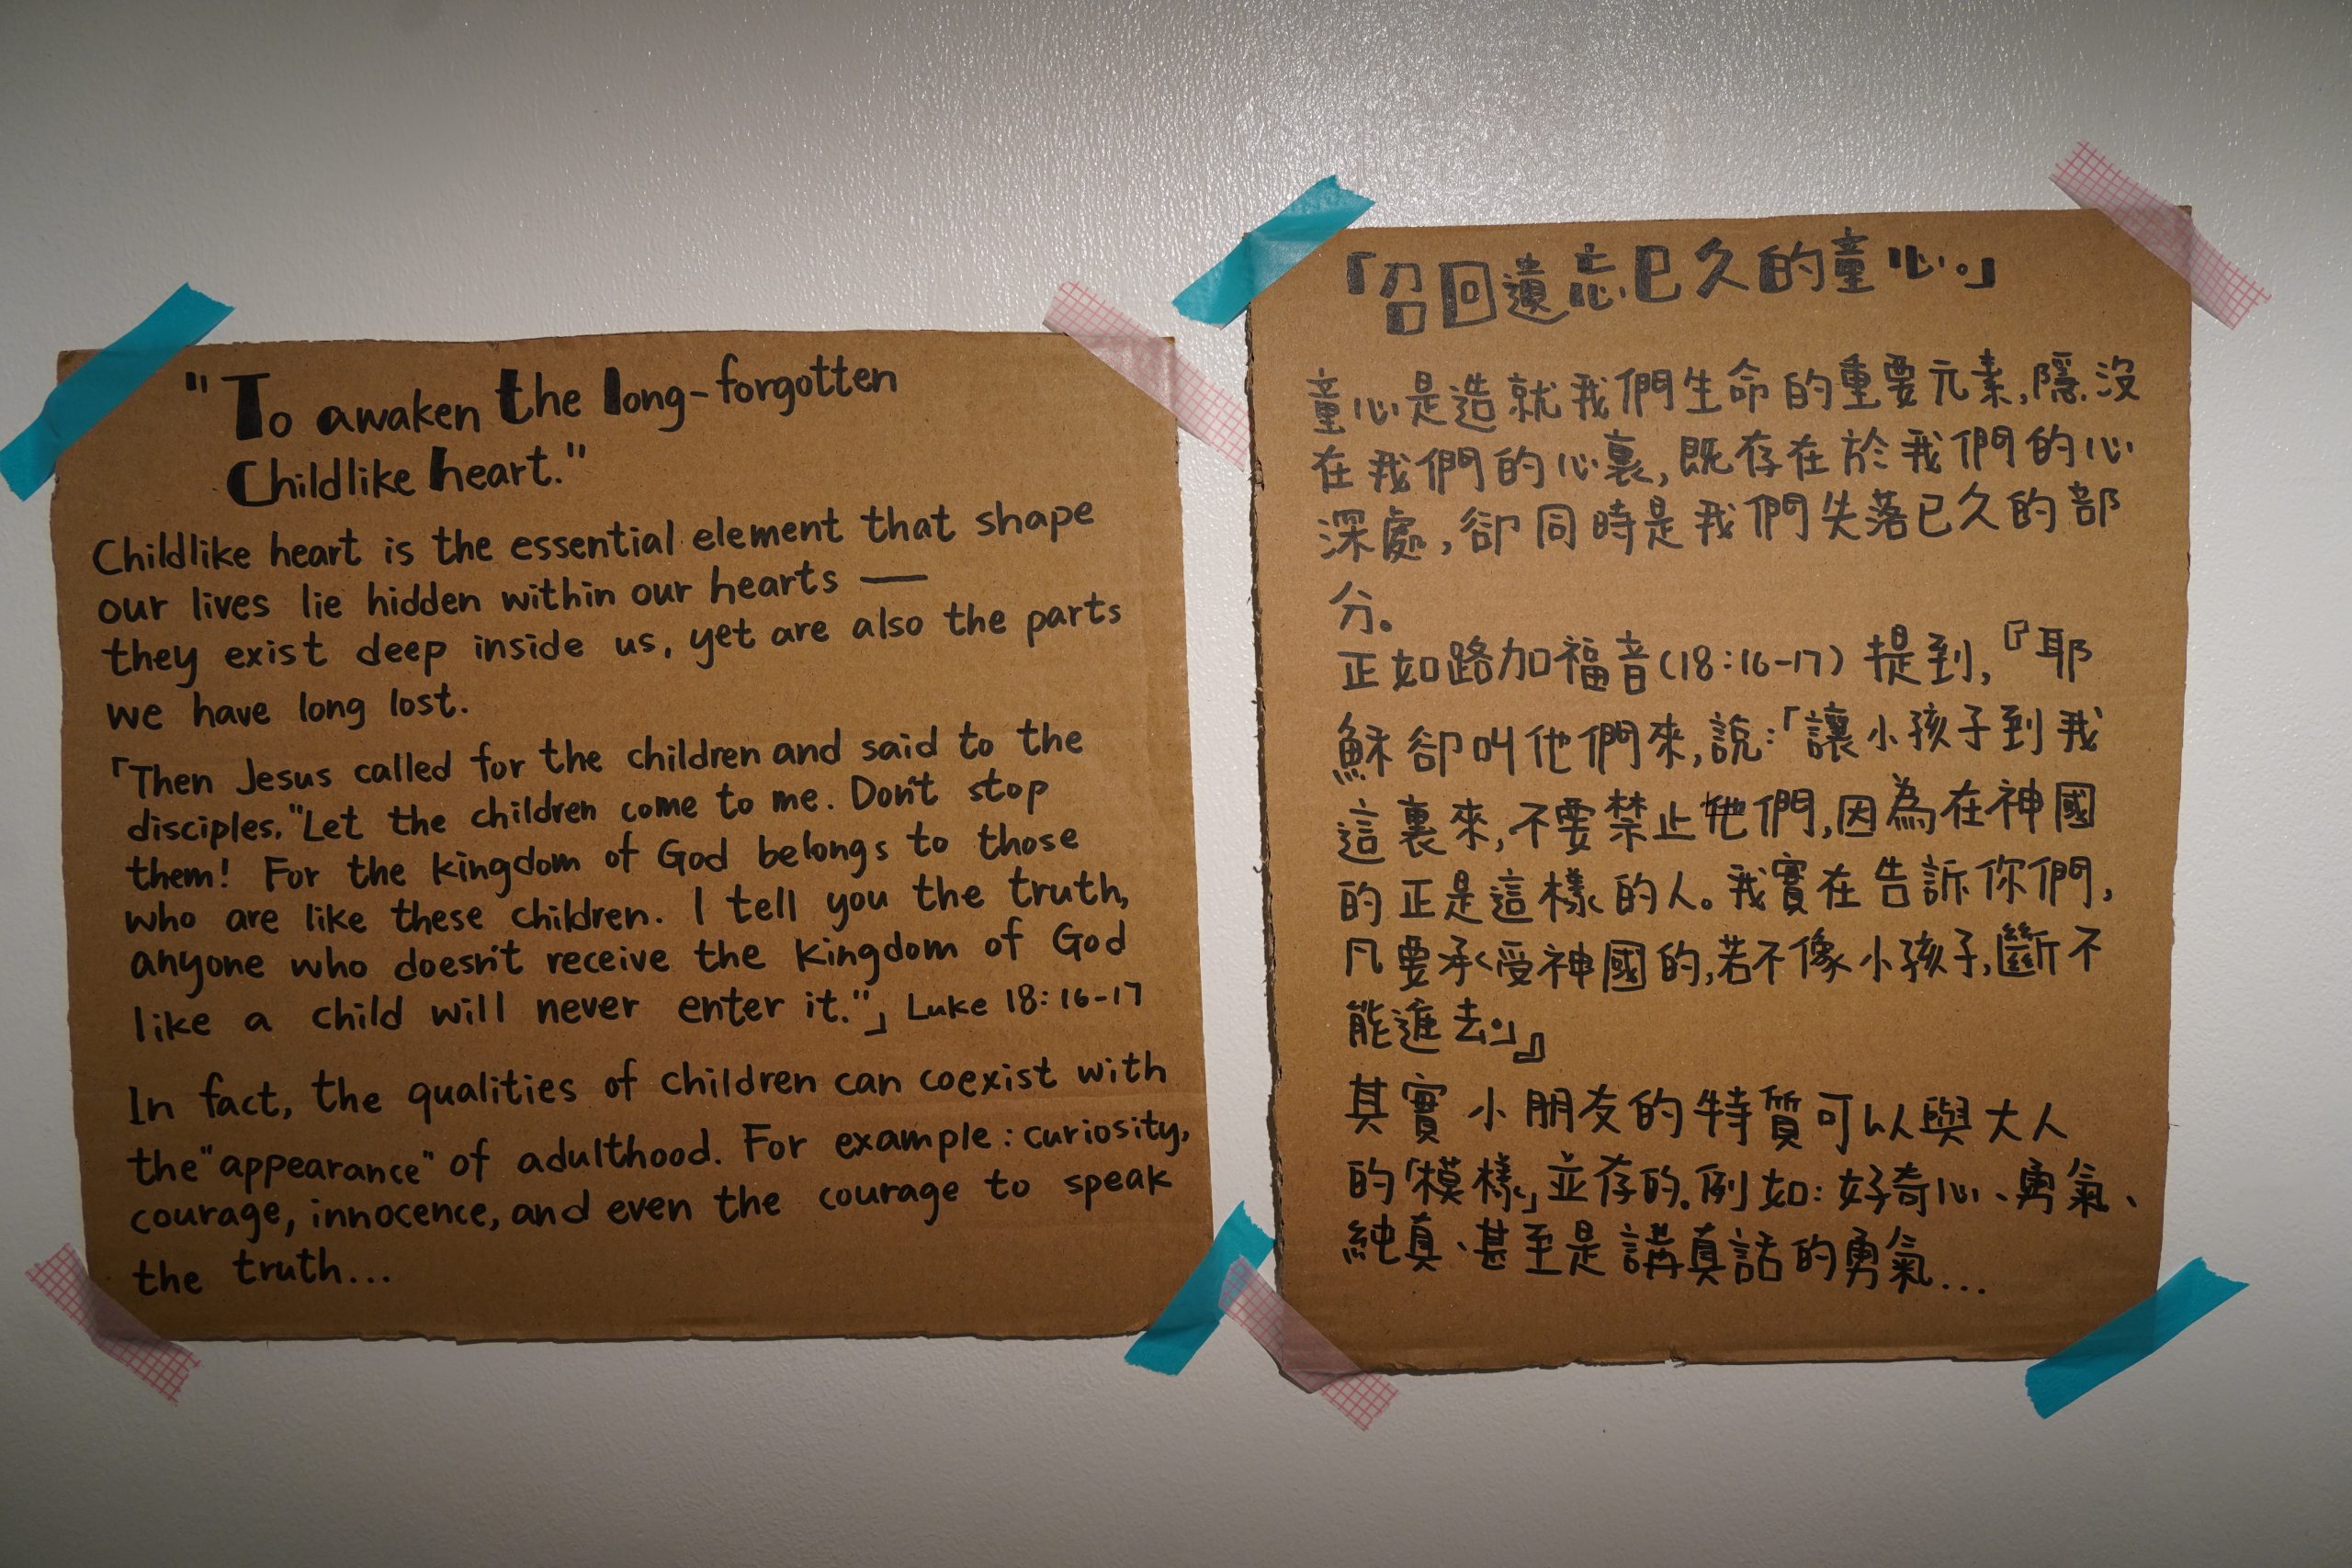 "To awaken the long-forgotten
Childlike heart."
Childlike heart is the essential element that shape
our lives lie hidden within our hearts —
they exist deep inside us, yet are also the parts
we have long lost.
「Then Jesus called for the children and said to the
disciples, "Let the children come to me. Don't stop
them! For the kingdom of God belongs to those
who are like these children. I tell you the truth,
anyone who doesn't receive the kingdom of God
like a child will never enter it."」 Luke 18:16-17
In fact, the qualities of children can coexist with
the "appearance" of adulthood. For example: curiosity,
courage, innocence, and even the courage to speak
the truth...
「召回遺忘已久的童心。」
童心是造就我們生命的重要元素,隱沒
在我們的心裏,既存在於我們的心
深處,卻同時是我們失落已久的部
分。
正如路加福音(18:16-17)提到,『耶
穌卻叫他們來,說:「讓小孩子到我
這裏來,不要禁止他們,因為在神國
的正是這樣的人。我實在告訴你們,
凡要承受神國的,若不像小孩子,斷不
能進去。」』
其實小朋友的特質可以與大人
的「模樣」並存的。例如:好奇心、勇氣、
純真、甚至是講真話的勇氣...